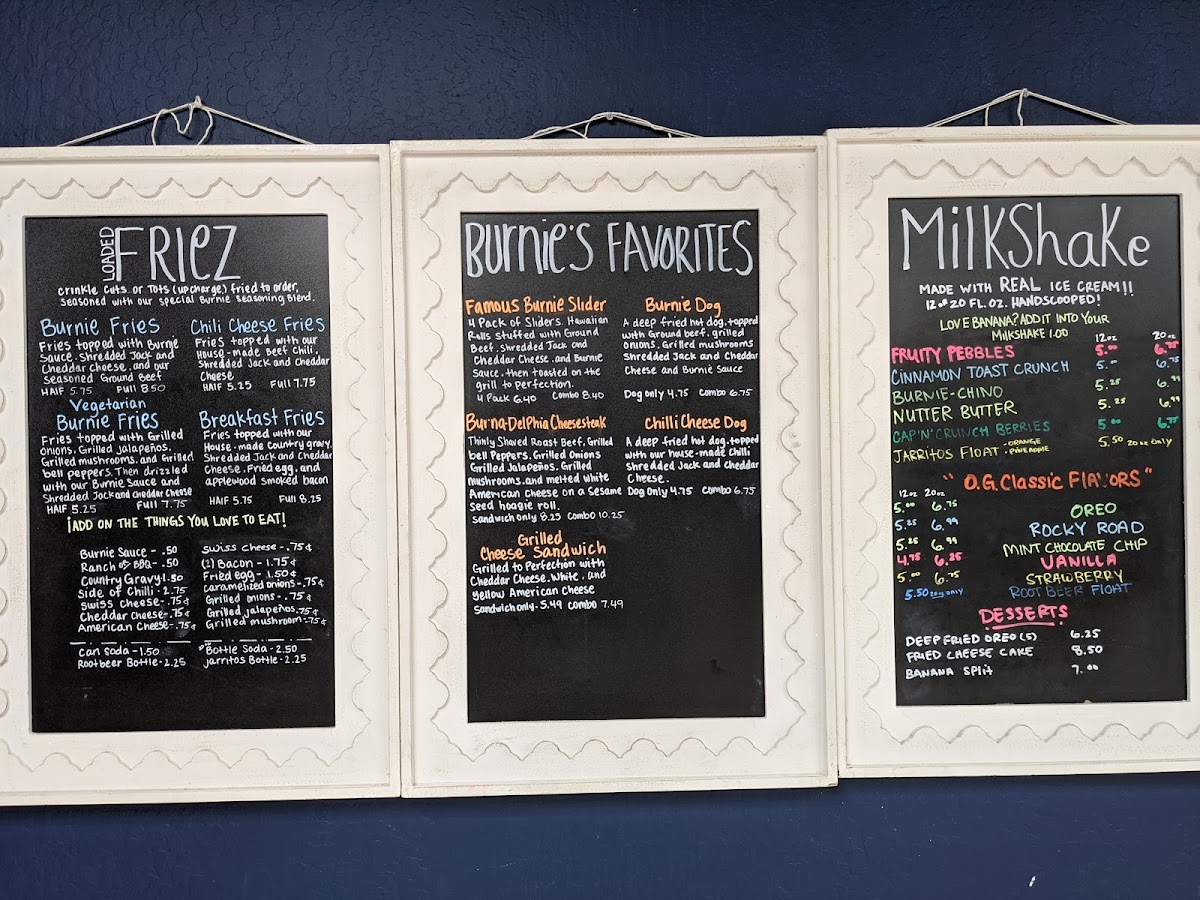 LOADED FRIEZ
crinkle cuts or Tots (upcharge) fried to order,
seasoned with our special Burnie seasoning blend.
Burnie Fries
Fries topped with Burnie
Sauce, Shredded Jack and
Cheddar cheese, and our
seasoned Ground Beef
HAlF 5.75 FUll 8.50
Chili Cheese Fries
Fries topped with our
House-made Beef Chili,
Shredded Jack and Cheddar
Cheese
HAlF 5.25 FUll 7.75
Vegetarian
Burnie Fries
Fries topped with Grilled
onions, Grilled jalapeños,
Grilled mushrooms, and Grilled
bell peppers. Then drizzled
with our Burnie Sauce and
Shredded Jack and Cheddar Cheese
HAlF 5.25 FUll 7.75
Breakfast Fries
Fries topped with our
House-made country gravy,
Shredded Jack and Cheddar
Cheese, Fried egg, and
applewood smoked bacon
HAlF 5.75 FUll 8.25
¡ADD ON THE THINGS YOU LOVE TO EAT!
Burnie Sauce - .50
Ranch or BBQ - .50
Country Gravy 1.50
Side of Chili - 2.75
Swiss cheese - .75¢
Cheddar Cheese - .75¢
American Cheese - .75¢
Swiss cheese - .75¢
(2) Bacon - 1.75¢
Fried egg - 1.50¢
caramelized onions - .75¢
Grilled onions - .75¢
Grilled jalapeños .75¢
Grilled mushroom - .75¢
Can Soda - 1.50
Rootbeer Bottle - 2.25
Bottle Soda - 2.50
Jarritos Bottle - 2.25
BURNIE'S FAVORITES
Famous Burnie Slider
4 Pack of Sliders. Hawaiian
Rolls stuffed with Ground
Beef, Shredded Jack and
Cheddar Cheese, and Burnie
Sauce, then toasted on the
grill to perfection.
4 Pack 6.40 Combo 8.40
Burnie Dog
A deep fried hot dog, topped
with Ground beef, grilled
onions, Grilled mushrooms
Shredded Jack and Cheddar
Cheese and Burnie Sauce
Dog only 4.75 Combo 6.75
Burna-Delphia Cheesesteak
Thinly Shaved Roast Beef, Grilled
bell Peppers, Grilled Onions
Grilled Jalapeños, Grilled
mushrooms, and melted white
American cheese on a Sesame
Seed hoagie roll.
Sandwich only 8.25 Combo 10.25
Chilli Cheese Dog
A deep fried hot dog, topped
with our house-made Chilli
Shredded Jack and Cheddar
Cheese.
Dog only 4.75 Combo 6.75
Grilled
Cheese Sandwich
Grilled to Perfection with
Cheddar Cheese, White, and
Yellow American Cheese
Sandwich only - 5.49 Combo 7.49
MilkShake
MADE WITH REAL ICE CREAM!!
12 or 20 FL.OZ. HANDSCOOPED!
LOVE BANANA? ADD IT INTO YOUR
MILKSHAKE 1.00
12oz 20oz
FRUITY PEBBLES 5.00 6.75
CINNAMON TOAST CRUNCH 5.00 6.75
BURNIE-CHINO 5.25 6.99
NUTTER BUTTER 5.25 6.99
CAP'N'CRUNCH BERRIES 5.00 6.75
JARRITOS FLOAT • ORANGE • PINEAPPLE 5.50 20oz ONLY
"O.G. Classic FlAVORS"
12oz 20oz
5.00 6.75 OREO
5.25 6.99 ROCKY ROAD
5.25 6.99 MINT CHOCOLATE CHIP
4.75 6.25 VANILLA
5.00 6.75 STRAWBERRY
5.50 20oz only ROOT BEER FLOAT
DESSERTS
DEEP FRIED OREO (5) 6.25
FRIED CHEESE CAKE 8.50
BANANA SPlit 7.00